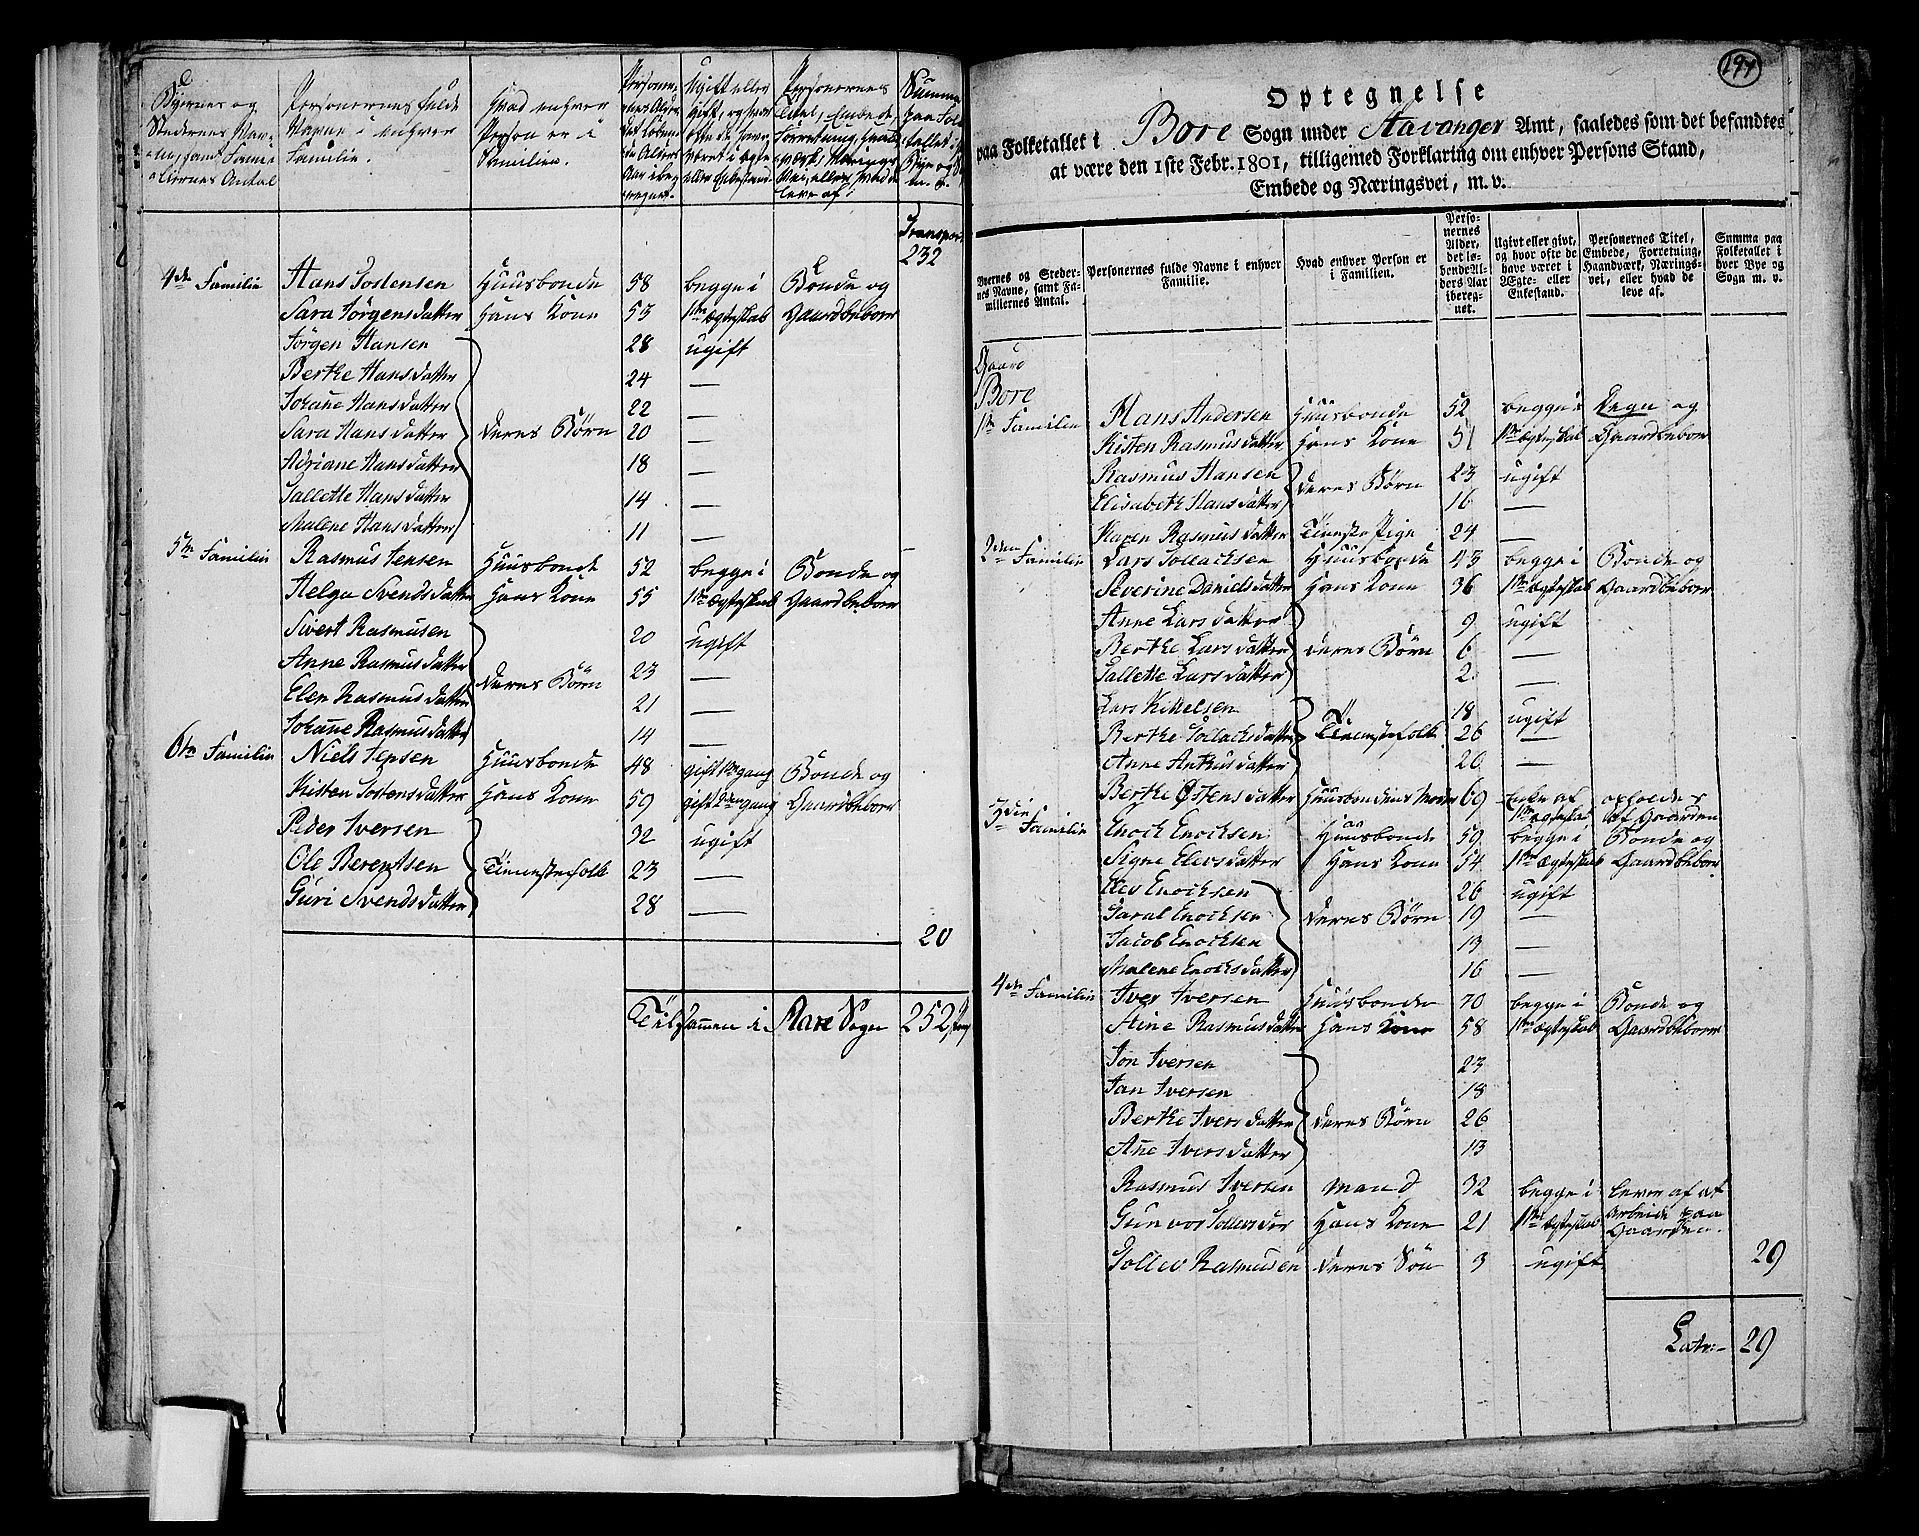 Byernes og
Stedernes Nav-
ne, samt Fami-
liernes Antal
Personernes fulde
Navne i enhver
Familie.
Hvad enhver
Person er i
Familien.
Ugift eller
gift, og hvor
Personernes
Titel, Embede,
Forretning, Haand-
værk, Nærings-
Vei, eller hvad de
leve af.
Transport
232
4de Familie Hans Jostensen Huusbonde 58 begge i Bonde og
Sara Jörgensdatter Hans Kone 53 1ste Ægteskab Gaardbeboer
Jörgen Hansen 28 ugift
Berthe Hansdatter 24 —
Johane Hansdatter 22 —
Sara Hansdatter deres Börn 20 —
Adriane Hansdatter 18 —
Tallette Hansdatter 14 —
Malene Hansdatter 11 —
5te Familie Rasmus Jensen Huusbonde 52 begge i Bonde og
Helga Svendsdatter Hans Kone 55 1ste Ægteskab Gaardbeboer
Sivert Rasmusen 20 ugift
Anne Rasmusdatter deres Börn 23 —
Elen Rasmusdatter 21 —
Johane Rasmusdatter 14 —
6te Familie Niels Jensen Huusbonde 48 gift 1ste gang Bonde og
Kisten Jostensdatter Hans Kone 59 gift 2den gang Gaardbeboer
Peder Iversen 32 ugift
Ole Berentsen Tienestefolk 23 —
Guri Svendsdatter 28 —
20
Tilsammen i Sogn 252
194
Optegnelse
paa Folketallet i Bore Sogn under Stavanger Amt, saaledes som det befandtes
at være den 1ste Febr. 1801, tilligemed Forklaring om enhver Persons Stand,
Embede og Næringsvei, m. v.
Byernes og Steder-
nes Navne, samt Fa-
miliernes Antal.
Personernes fulde Navne i enhver
Familie.
Hvad enhver Person er
i Familien.
Perso-
nernes
Alder,
det lø-
bende Al-
ders Aar
ibereg-
net.
Ugivt eller givt,
og hvor ofte de
have været i
Ægte- eller
Enkestand.
Personernes Titel,
Embede, Forretning,
Haandværk, Nærings-
vei, eller hvad de
leve af.
Summa paa
Folketallet i
hver Bye og
Sogn m. v.
Gaard
Bore
1ste Familie Hans Andersen Huusbonde 52 begge i Degn og
Kisten Rasmusdatter Hans Kone 51 1ste Ægteskab Gaardbeboer
Rasmus Hansen deres Börn 23 ugift
Elisabeth Hansdatter 16 —
Karen Rasmusdatter Tieneste Pige 24 —
2den Familie Lars Tollachsen Huusbonde 43 begge i Bonde og
Severine Danielsdatter Hans Kone 36 1ste Ægteskab Gaardbeboer
Anne Larsdatter 9 ugift
Berthe Larsdatter deres Börn 6 —
Tallette Larsdatter 2 —
Lars Kittelsen 18 ugift
Berthe Tollachsdatter Tienestefolk 26 —
Anne datter 20 —
Berthe Østensdatter Huusbondens Moder 69 Enke af opholdes
1ste Ægteskab af Gaarden
3die Familie Enoch Enochsen Huusbonde 59 begge i Bonde og
Signe Elevsdatter Hans Kone 54 1ste Ægteskab Gaardbeboer
Elev Enochsen 26 ugift
Taral Enochsen deres Börn 19 —
Jacob Enochsen 13 —
Malene Enochsdatter 16 —
4de Familie Iver Iversen Huusbonde 70 begge i Bonde og
Stine Rasmusdatter Hans Kone 58 1ste Ægteskab Gaardbeboer
Jon Iversen 23
Jan Iversen 18
Berthe Iversdatter deres Börn 26
Ane Iversdatter 13
Rasmus Iversen Mand 32 begge i lever af at
Gunvor Hans Kone 21 1ste Ægteskab Arbeide paa
Gaarden.
Tollev Rasmusen deres Sön 3 ugift 29
Latr:- 29